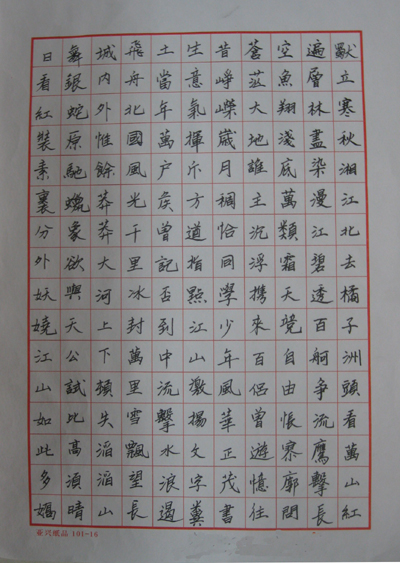 獸立寒秋湘江北去橘子洲頭看萬山紅
遍層林盡染漫江碧透百舸爭流鷹擊長
空魚翔淺底萬類霜天競自由悵寥廓問
蒼茫大地誰主沉浮携來百侶曾遊憶往
昔崢嶸歲月稠恰同學少年風華正茂書
生意氣揮斥方遒指點江山激揚文字糞
土當年萬户侯曾記否到中流擊水浪遏
飛舟北國風光千里冰封萬里雪飄望長
城内外惟餘莽莽大河上下頓失滔滔山
舞銀蛇原馳蠟象欲與天公試比高須晴
日看紅裝素裹分外妖嬈江山如此多嬌
101-16